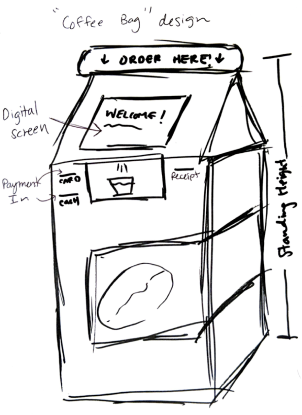 "Coffee Bag" design
↓ ORDER HERE! ↓
WELCOME!
Digital
screen
Payment
In
CARD
CASH
Receipt
Standing Height